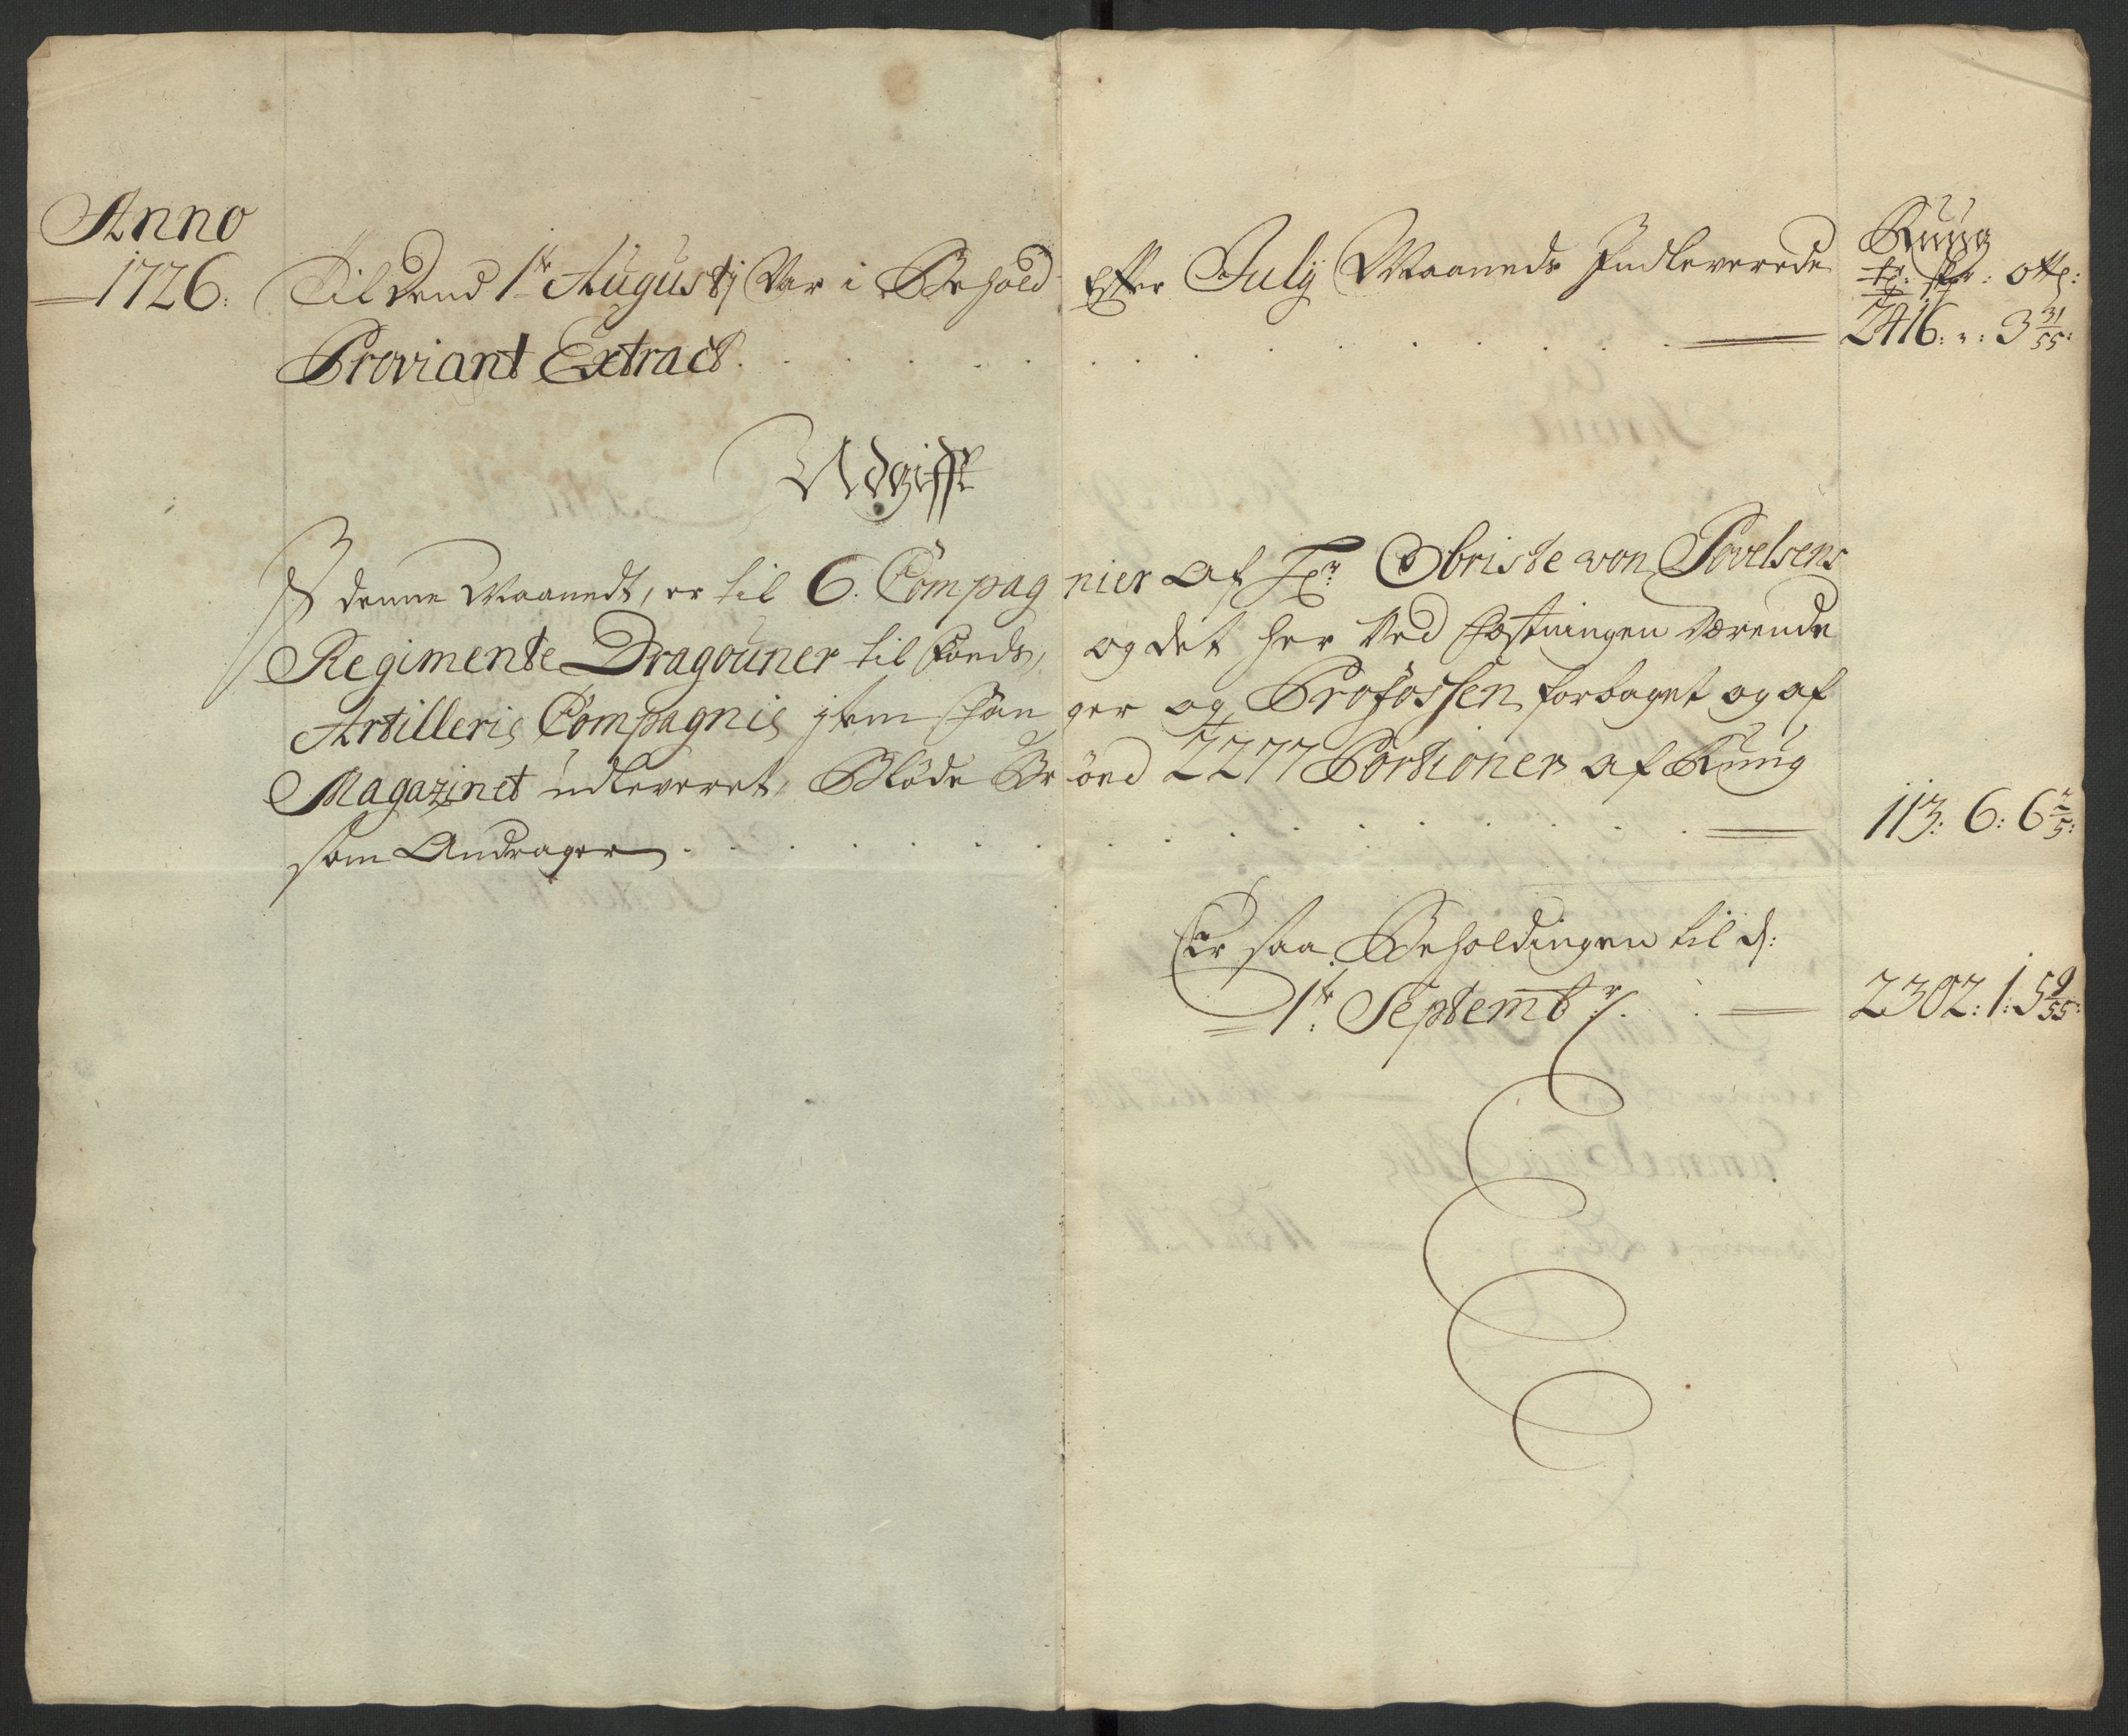 Anno
1726.
Til dend 1te Augustÿ Var i Behold Efter Julÿ Maaneds Indleverede
Proviant Extract.
Ruug
tr: skp: ott:
2416: „: 3 31/55:
Udgifft
I denne Maanedt, er til 6. Compagnier af Hr: Obriste von Povelsens
Regimente Dragouner til foeds, og det her ved Fæstningen Værende
Artilleri Compagnie item Fanger og Profossen forbaget og af
Magazinet udleveret, Bløde Brøed 2277 Portioner af Ruug
som Andrager
113: 6: 6 2/5:
Er saa Beholdingen til d:
1te: Septembr:
2302: 1: 5 9/55: